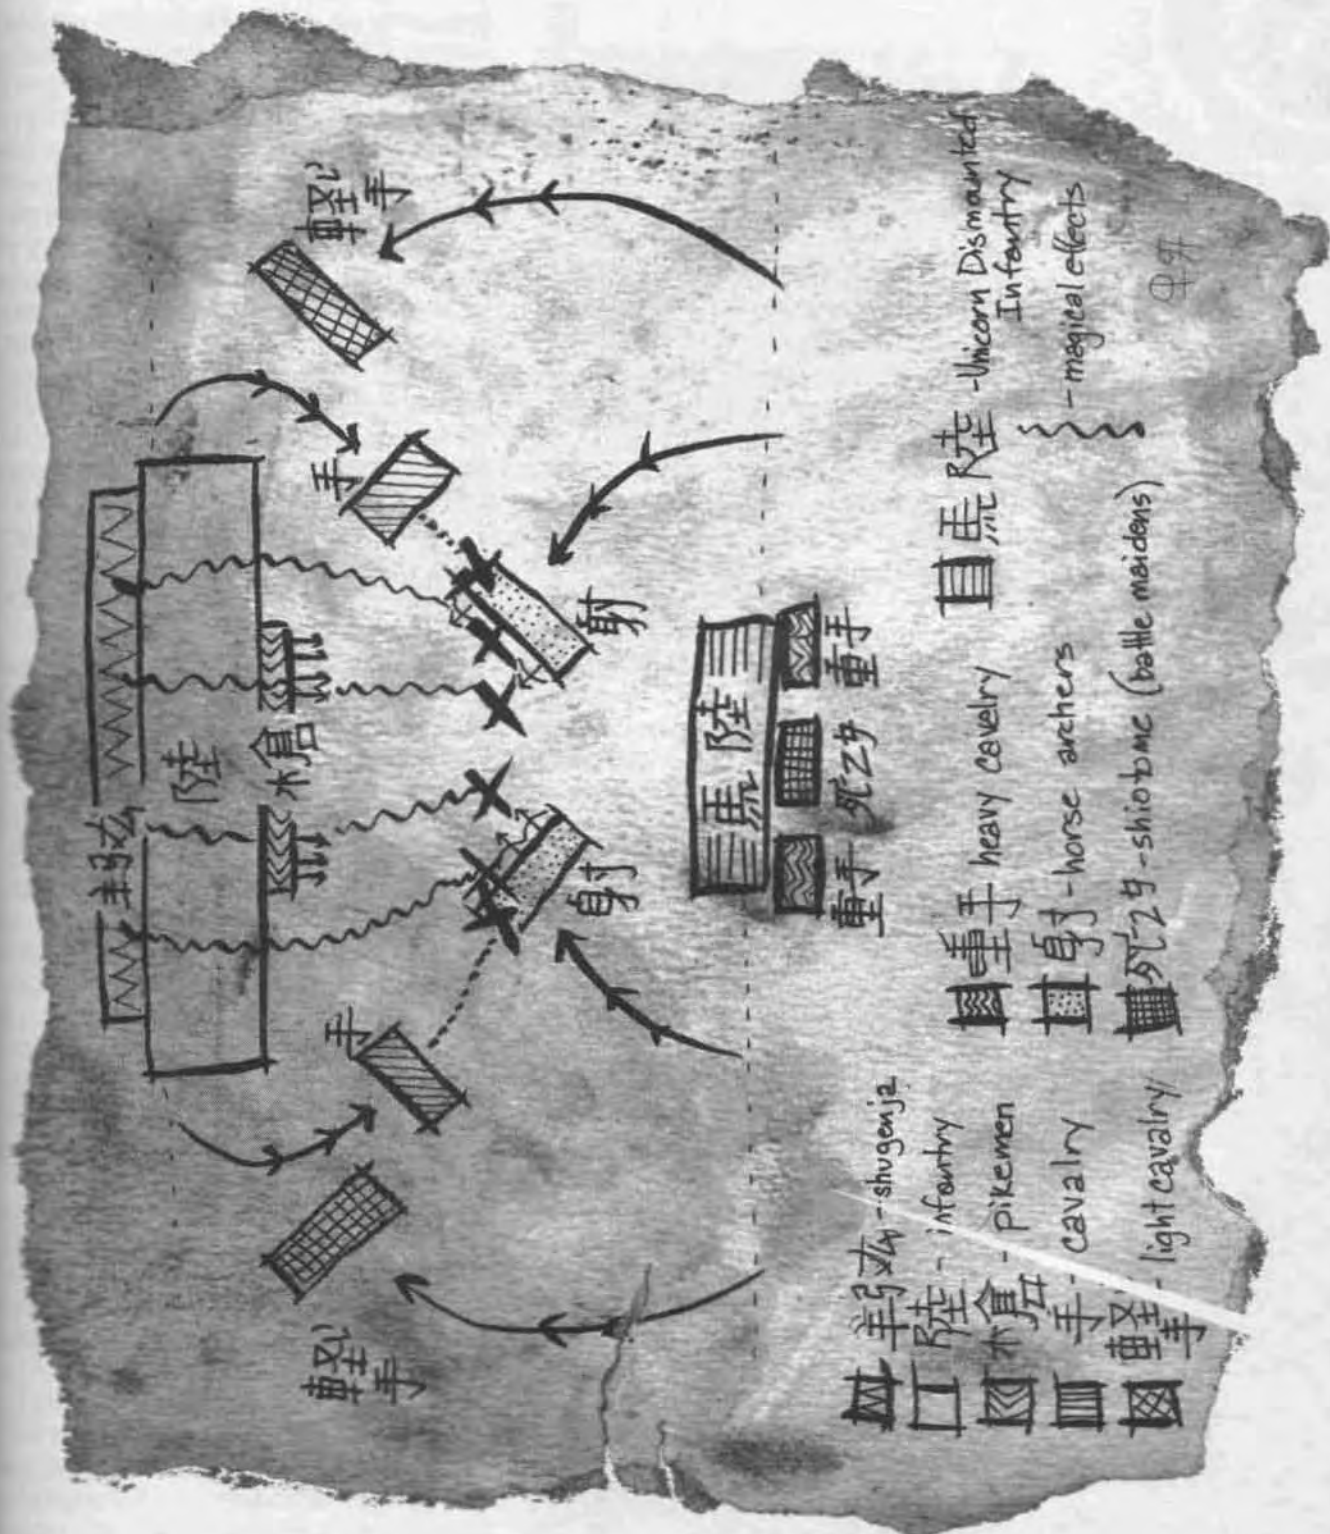 陸
槍
軽
手
軽
手
手
手
射
射
馬 陸
重手
死乙女
重手
- shugenja
陸 - infantry
槍 - pikemen
手 - cavalry
軽
手 - light cavalry
重手 heavy cavelry
射 - horse archers
死乙女 - shiotome (battle maidens)
馬陸 - Unicorn Dismounted
Infantry
- magical effects